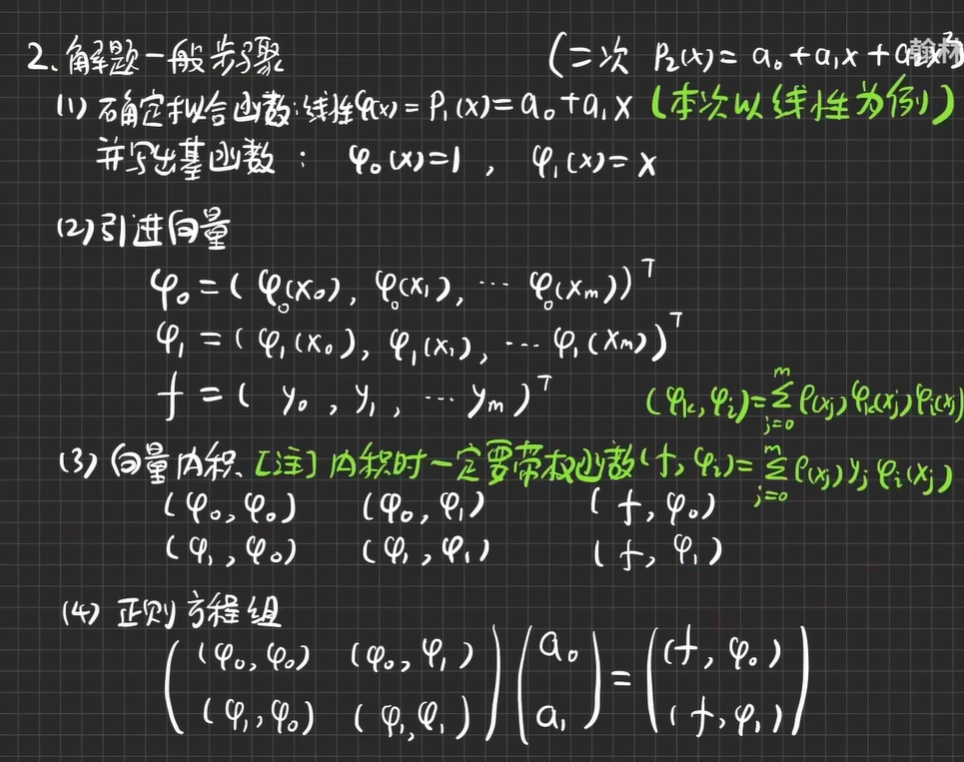 2. 解题一般步骤 (二次 P₂(x) = a₀ + a₁x + a₂x²)
(1) 确定拟合函数: 线性φ(x) = P₁(x) = a₀ + a₁x (本次以线性为例)
并写出基函数: φ₀(x)=1, φ₁(x)=x
(2) 引进向量
φ₀ = (φ₀(x₀), φ₀(x₁), ⋯ φ₀(xₘ))ᵀ
φ₁ = (φ₁(x₀), φ₁(x₁), ⋯ φ₁(xₘ))ᵀ
f = (y₀, y₁, ⋯ yₘ)ᵀ
(φₖ, φᵢ) = ∑ⱼ₌₀ᵐ ρ(xⱼ)φₖ(xⱼ)φᵢ(xⱼ)
(3) 向量内积. [注] 内积时一定要带权函数 (f, φᵢ) = ∑ⱼ₌₀ᵐ ρ(xⱼ) yⱼ φᵢ(xⱼ)
(φ₀, φ₀) (φ₀, φ₁) (f, φ₀)
(φ₁, φ₀) (φ₁, φ₁) (f, φ₁)
(4) 正则方程组
(φ₀, φ₀) (φ₀, φ₁) a₀ = (f, φ₀)
(φ₁, φ₀) (φ₁, φ₁) a₁ (f, φ₁)